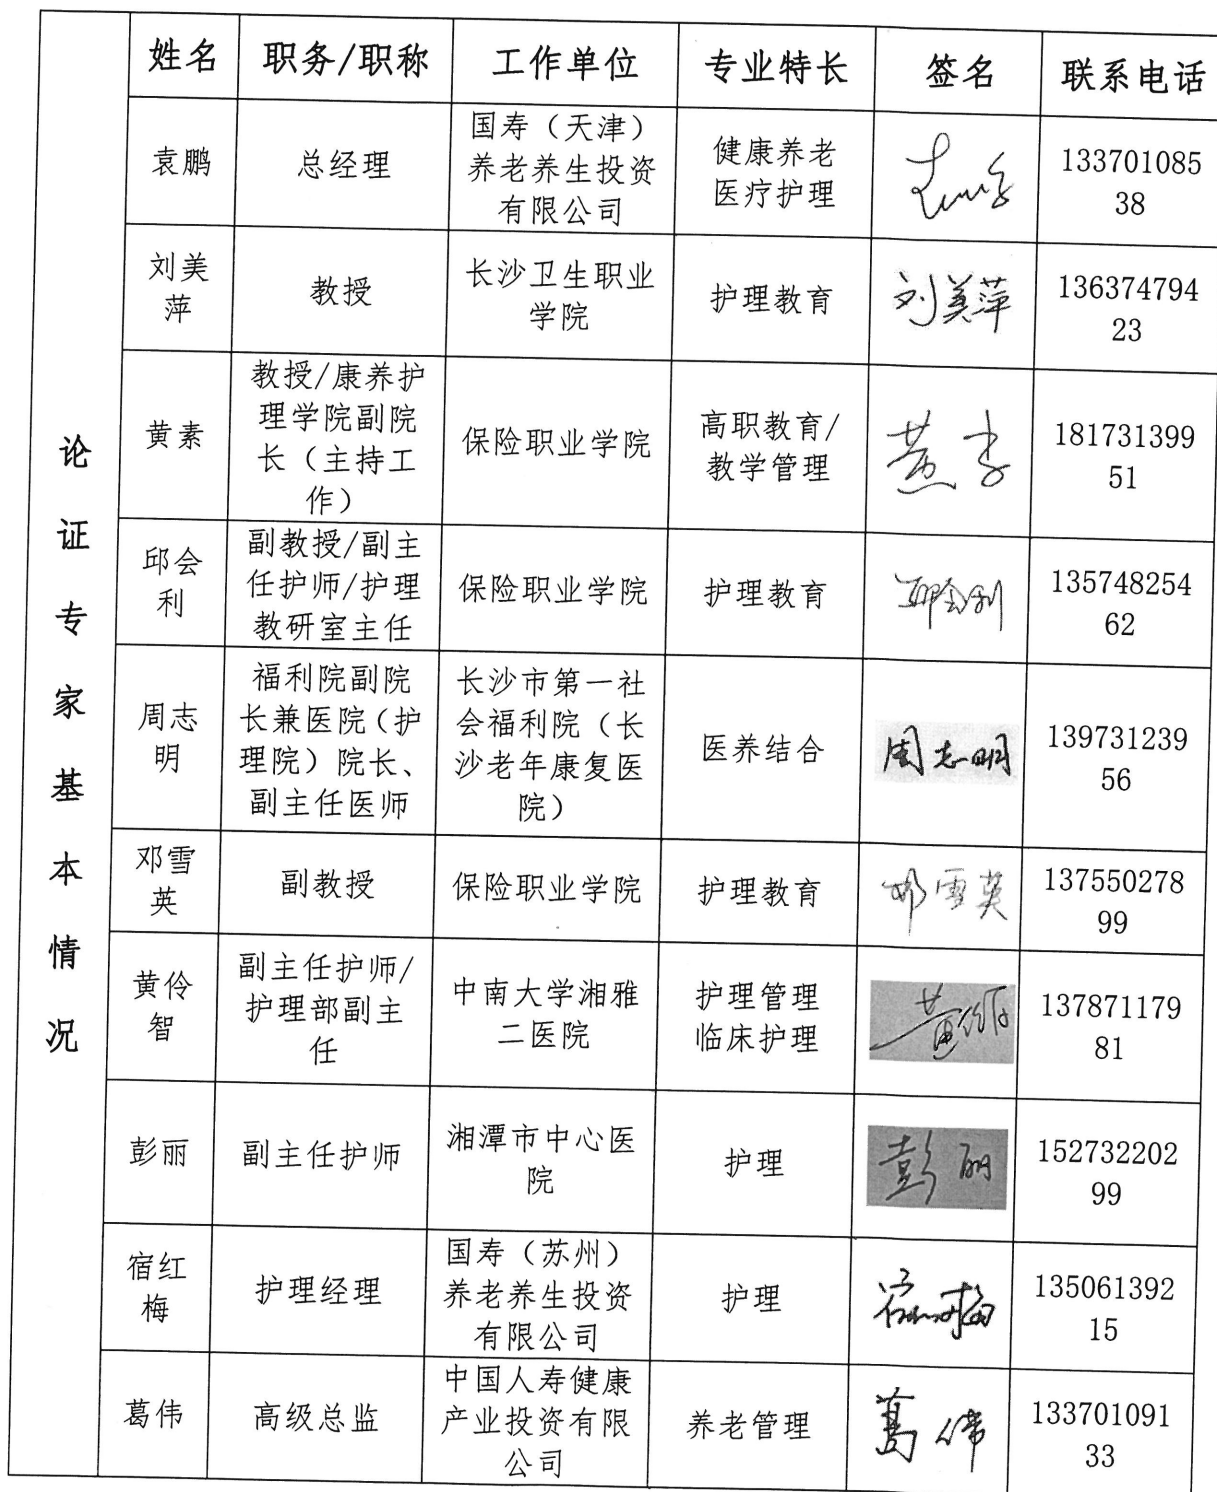 论证专家基本情况
姓名 职务/职称 工作单位 专业特长 签名 联系电话
袁鹏
总经理
国寿（天津）
养老养生投资
有限公司
健康养老
医疗护理
133701085
38
刘美
萍
教授
长沙卫生职业
学院
护理教育
刘美萍
136374794
23
黄素
教授/康养护
理学院副院
长（主持工
作）
保险职业学院
高职教育/
教学管理
黄素
181731399
51
邱会
利
副教授/副主
任护师/护理
教研室主任
保险职业学院
护理教育
邱会利
135748254
62
周志
明
福利院副院
长兼医院（护
理院）院长、
副主任医师
长沙市第一社
会福利院（长
沙老年康复医
院）
医养结合
周志明
139731239
56
邓雪
英
副教授
保险职业学院
护理教育
邓雪英
137550278
99
黄伶
智
副主任护师/
护理部副主
任
中南大学湘雅
二医院
护理管理
临床护理
137871179
81
彭丽
副主任护师
湘潭市中心医
院
护理
彭丽
152732202
99
宿红
梅
护理经理
国寿（苏州）
养老养生投资
有限公司
护理
宿红梅
135061392
15
葛伟
高级总监
中国人寿健康
产业投资有限
公司
养老管理
葛伟
133701091
33